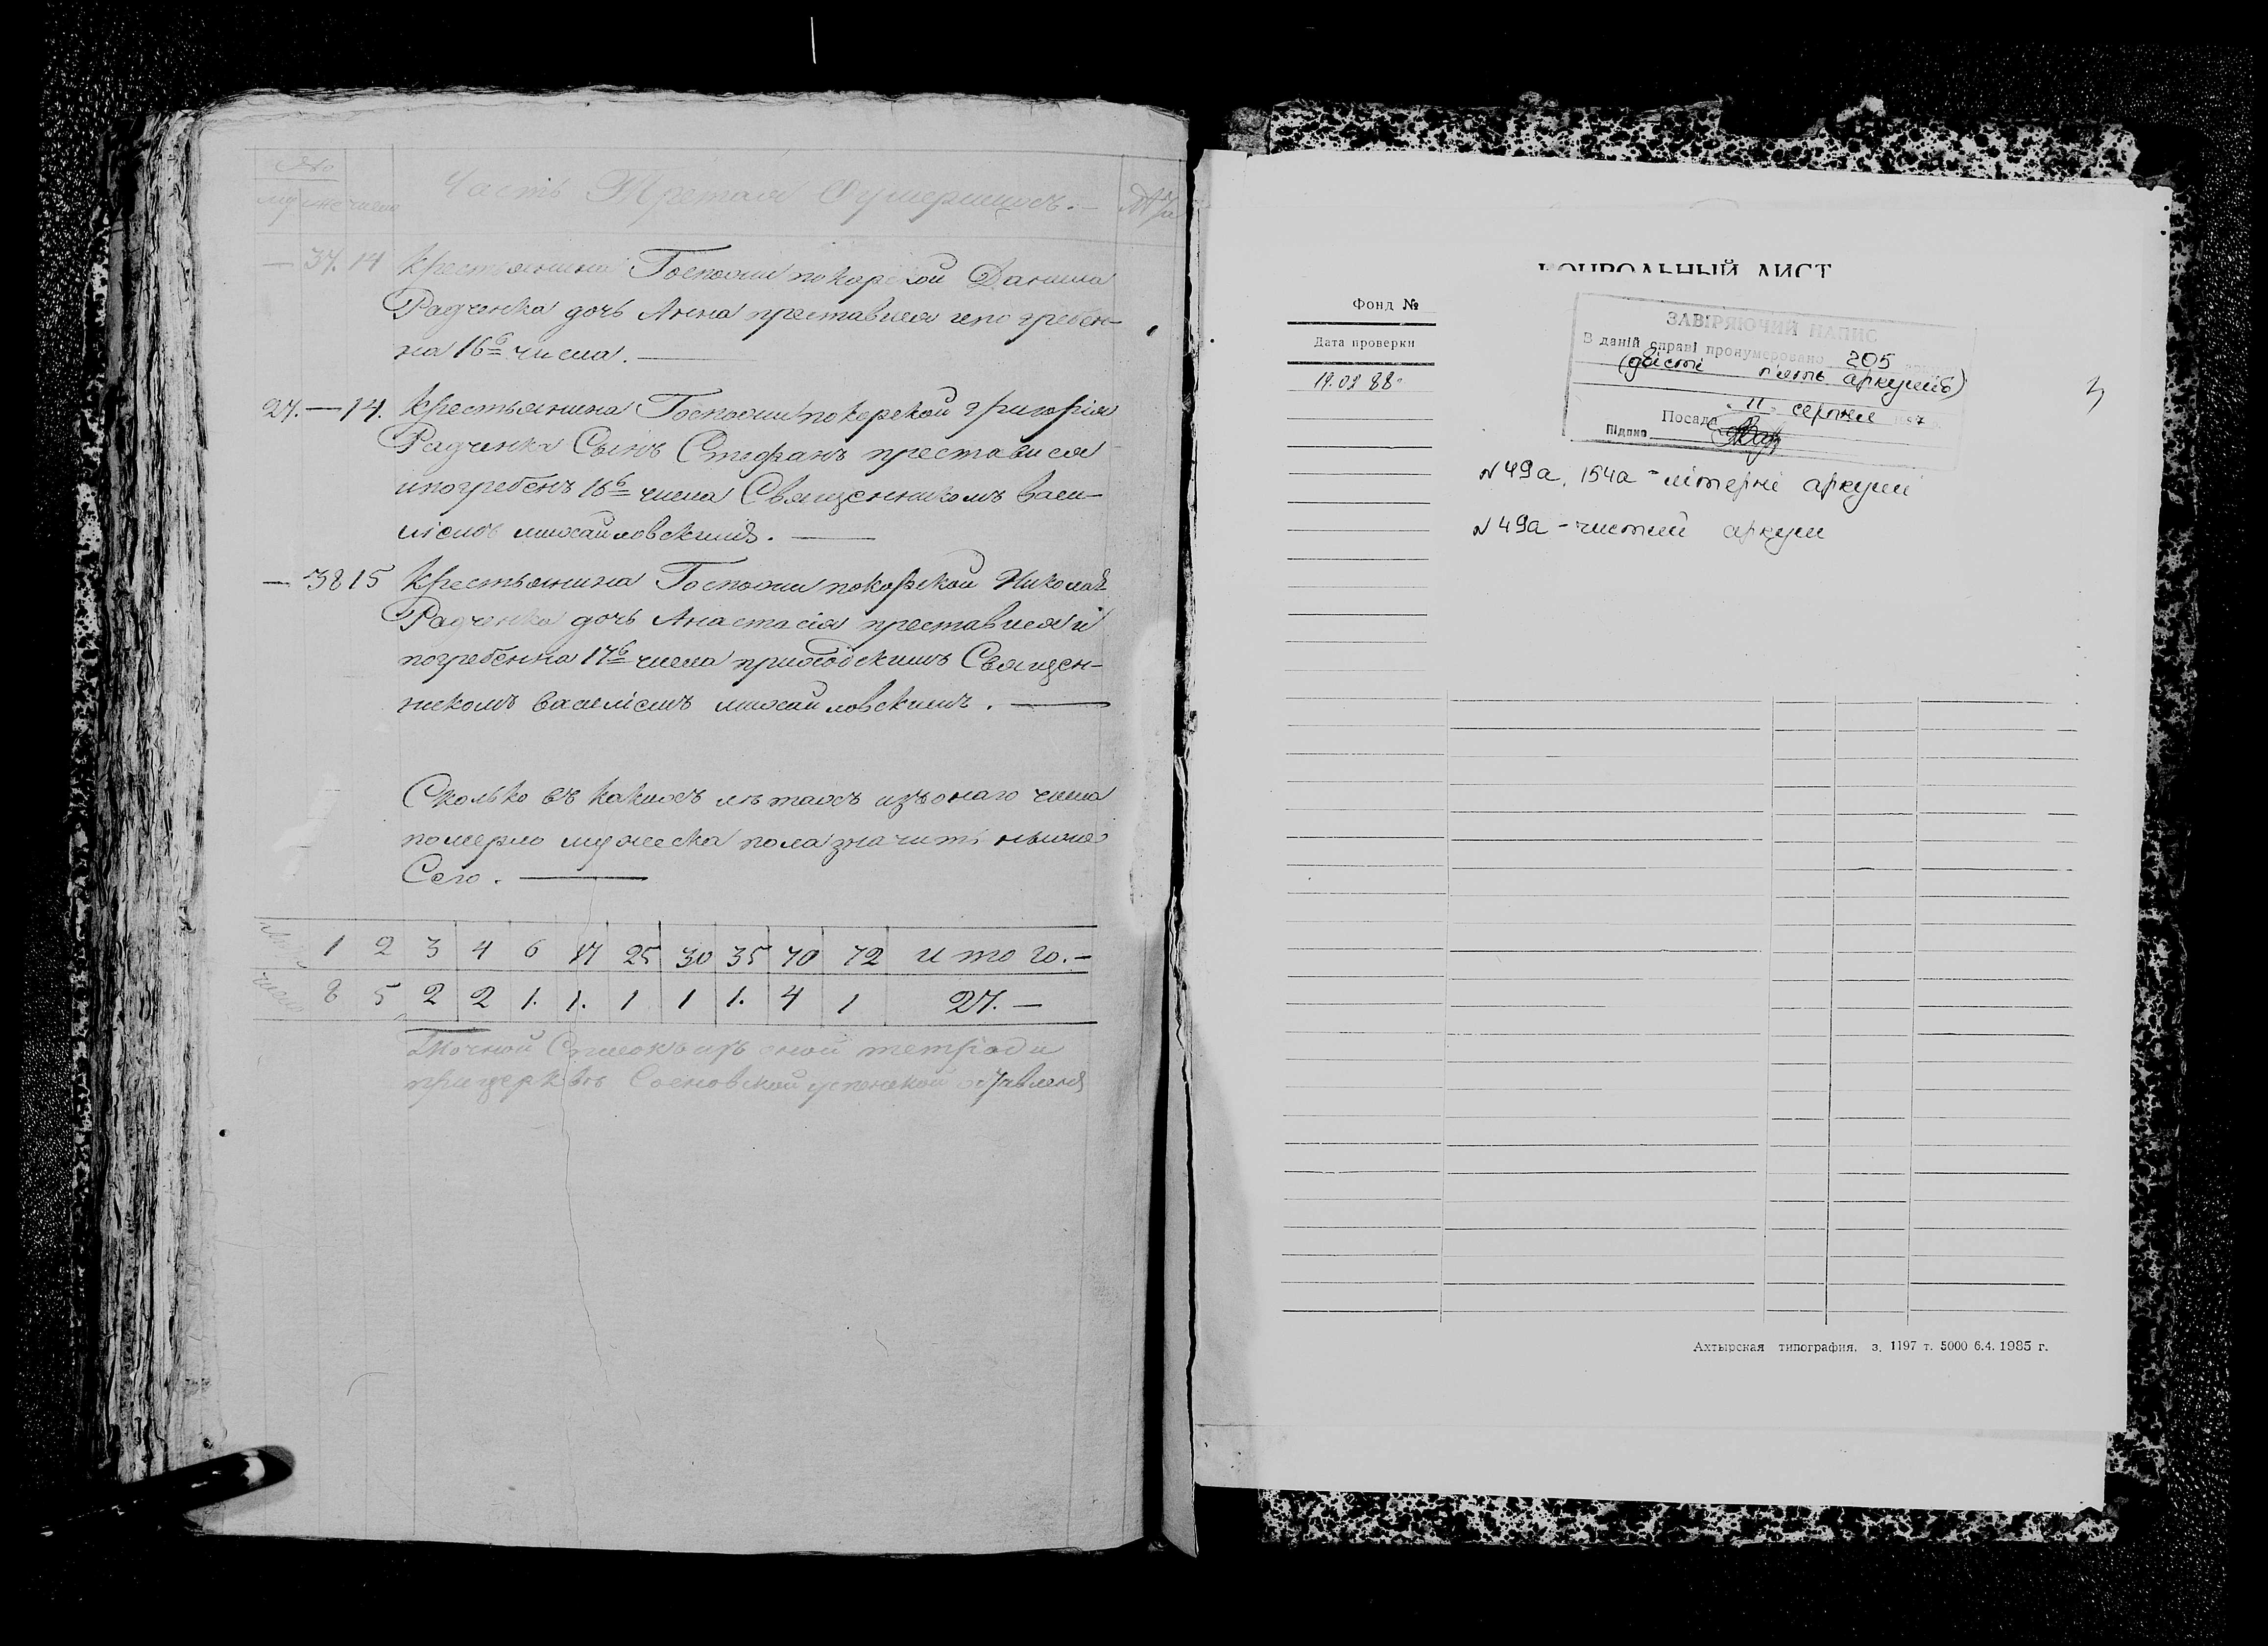 №
Часть Третая Оумершихъ.
— 37. 14 Крестьянина Госпожи покорской Данила
Радченка дочь Анна преставися ипогребен-
на 16го числа.
27. — 14. Крестьянина Госпожи покорской григорія
Радченка Сынъ Стефанъ преставися
ипогребенъ 16го числа Священникомъ васи-
ліемъ михайловскимъ.
— 38 15 Крестьянина Госпожи покорской Николая
Радченка дочь Анастасія преставися и
погребенна 17го числа приходскимъ Священ-
никомъ василіемъ михайловскимъ.
Сколько въ какихъ лѣтахъ изъ онаго числа
померло мужеска пола значитъ нижше
Сего.
1 2 3 4 6 17 25 30 35 70 72 итого.-
число 8 5 2 2 1. 1. 1 1 1. 4 1 27.—
Точной Списокъ изъ оной тетради
прицерквѣ Сосновской успенской оставленъ
ЛИСТ
Фонд №
Дата проверки
19.03 88
ЗАВІРЯЮЧИЙ НАПИС
В даній справі пронумеровано 205
(двісті п'ять аркушів)
11 серпня
Посада
Підпис
№49а, 154а - літерні аркуші
№49а - чистий аркуш
Ахтырская типография, з. 1197 т. 5000 6.4. 1985 г.